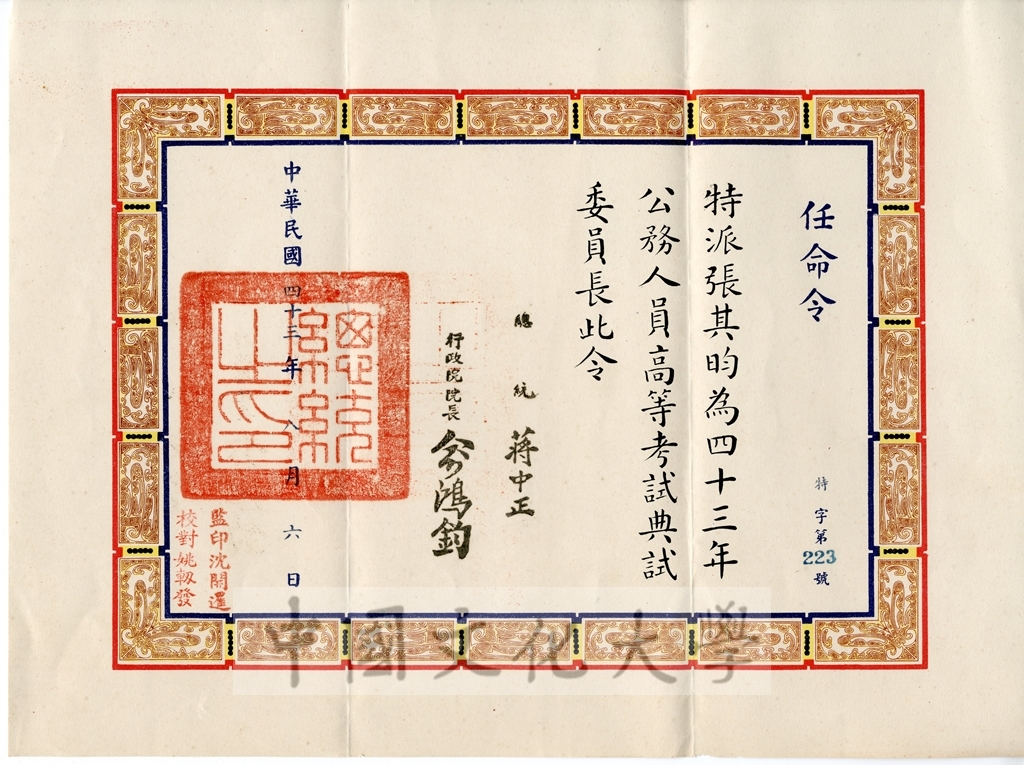 任命令
特字第223號
特派張其昀為四十三年
公務人員高等考試典試
委員長此令
總統 蔣中正
行政院院長 俞鴻鈞
中華民國四十三年八月六日
總統之印
監印沈開運
校對姚軔發
中國文化大學